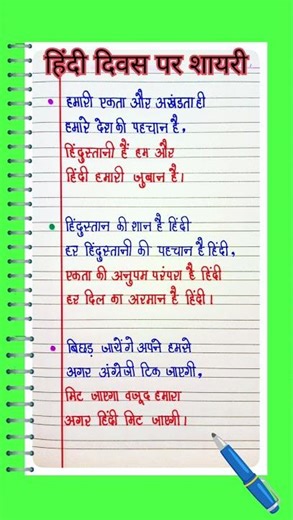 हिंदी दिवस पर शायरी
हमारी एकता और अखंडता ही
हमारे देश की पहचान है,
हिंदुस्तानी हैं हम और
हिंदी हमारी जुबान है।
हिंदुस्तान की शान है हिंदी
हर हिंदुस्तानी की पहचान है हिंदी,
एकता की अनुपम परंपरा है हिंदी
हर दिल का अरमान है हिंदी।
बिछड़ जायेंगे अपने हमसे
अगर अंग्रेजी टिक जाएगी,
मिट जाएगा वजूद हमारा
अगर हिंदी मिट जाएगी।